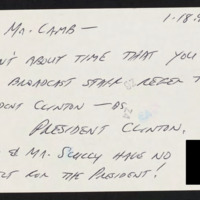 1-18-9
Mr. Camb—
N'T ABOUT TIME THAT YOU
BROADCAST STAFF REFER T
DENT CLINTON — AS
PRESIDENT CLINTON,
& MR. SCULLY HAVE NO
ECT FOR THE PRESIDENT!